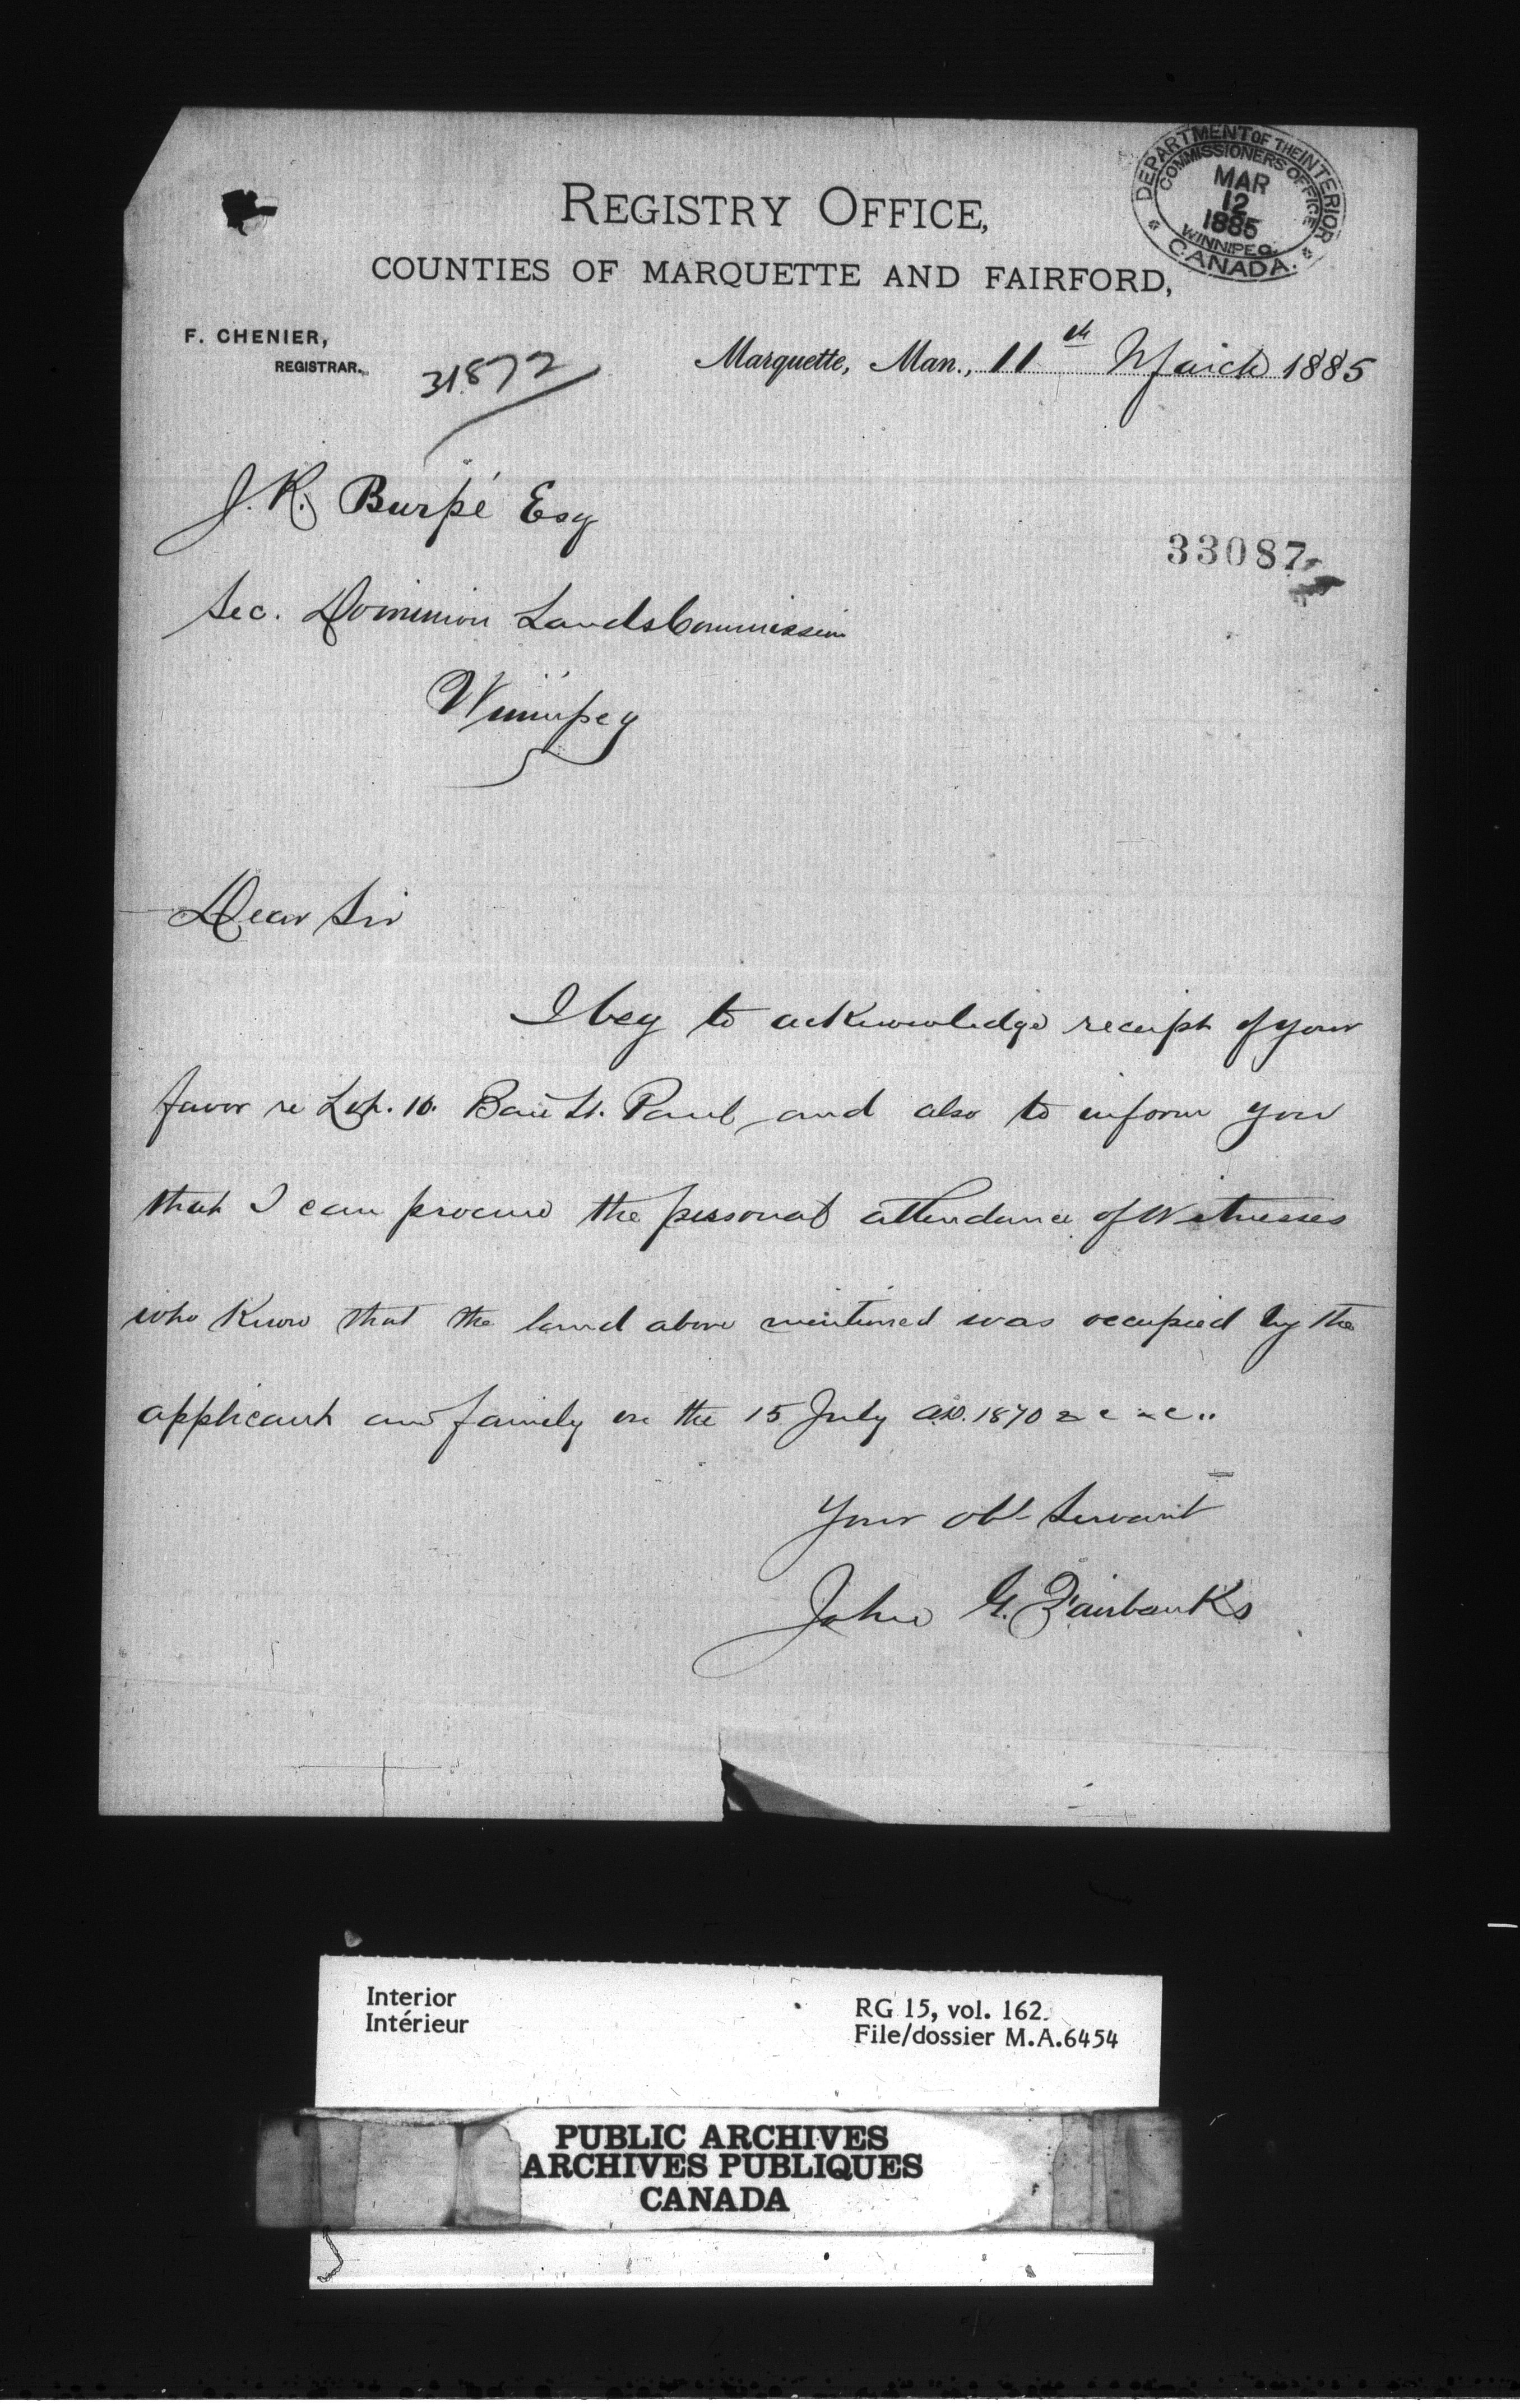 DEPARTMENT OF THE INTERIOR
COMMISSIONERS OFFICE
MAR
12
1885
WINNIPEG
CANADA.
REGISTRY OFFICE,
COUNTIES OF MARQUETTE AND FAIRFORD,
F. CHENIER,
REGISTRAR.
31872
Marquette, Man., 11th March 1885
J. K. Burpé Esq
33087
Sec. Dominion Lands Commission
Winnipeg
Dear Sir
I beg to acknowledge receipt of your
favor re Lot. 10. Baie St. Paul and also to inform you
that I can procure the personal attendance of Witnesses
who Know that the land above mentioned was occupied by the
applicant and family on the 15 July A.D. 1870 &c &c..
Your obt Servant
John G. Fairbanks
Interior
Intérieur
RG 15, vol. 162
File/dossier M.A.6454
PUBLIC ARCHIVES
ARCHIVES PUBLIQUES
CANADA